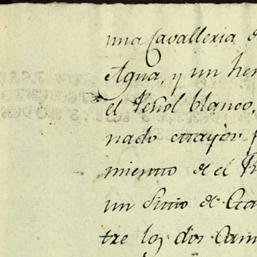 una Cavalleria d
Agua, y un her
el Peñol blanco,
nado
miento de el
un Sitio de
tre los dos Cam